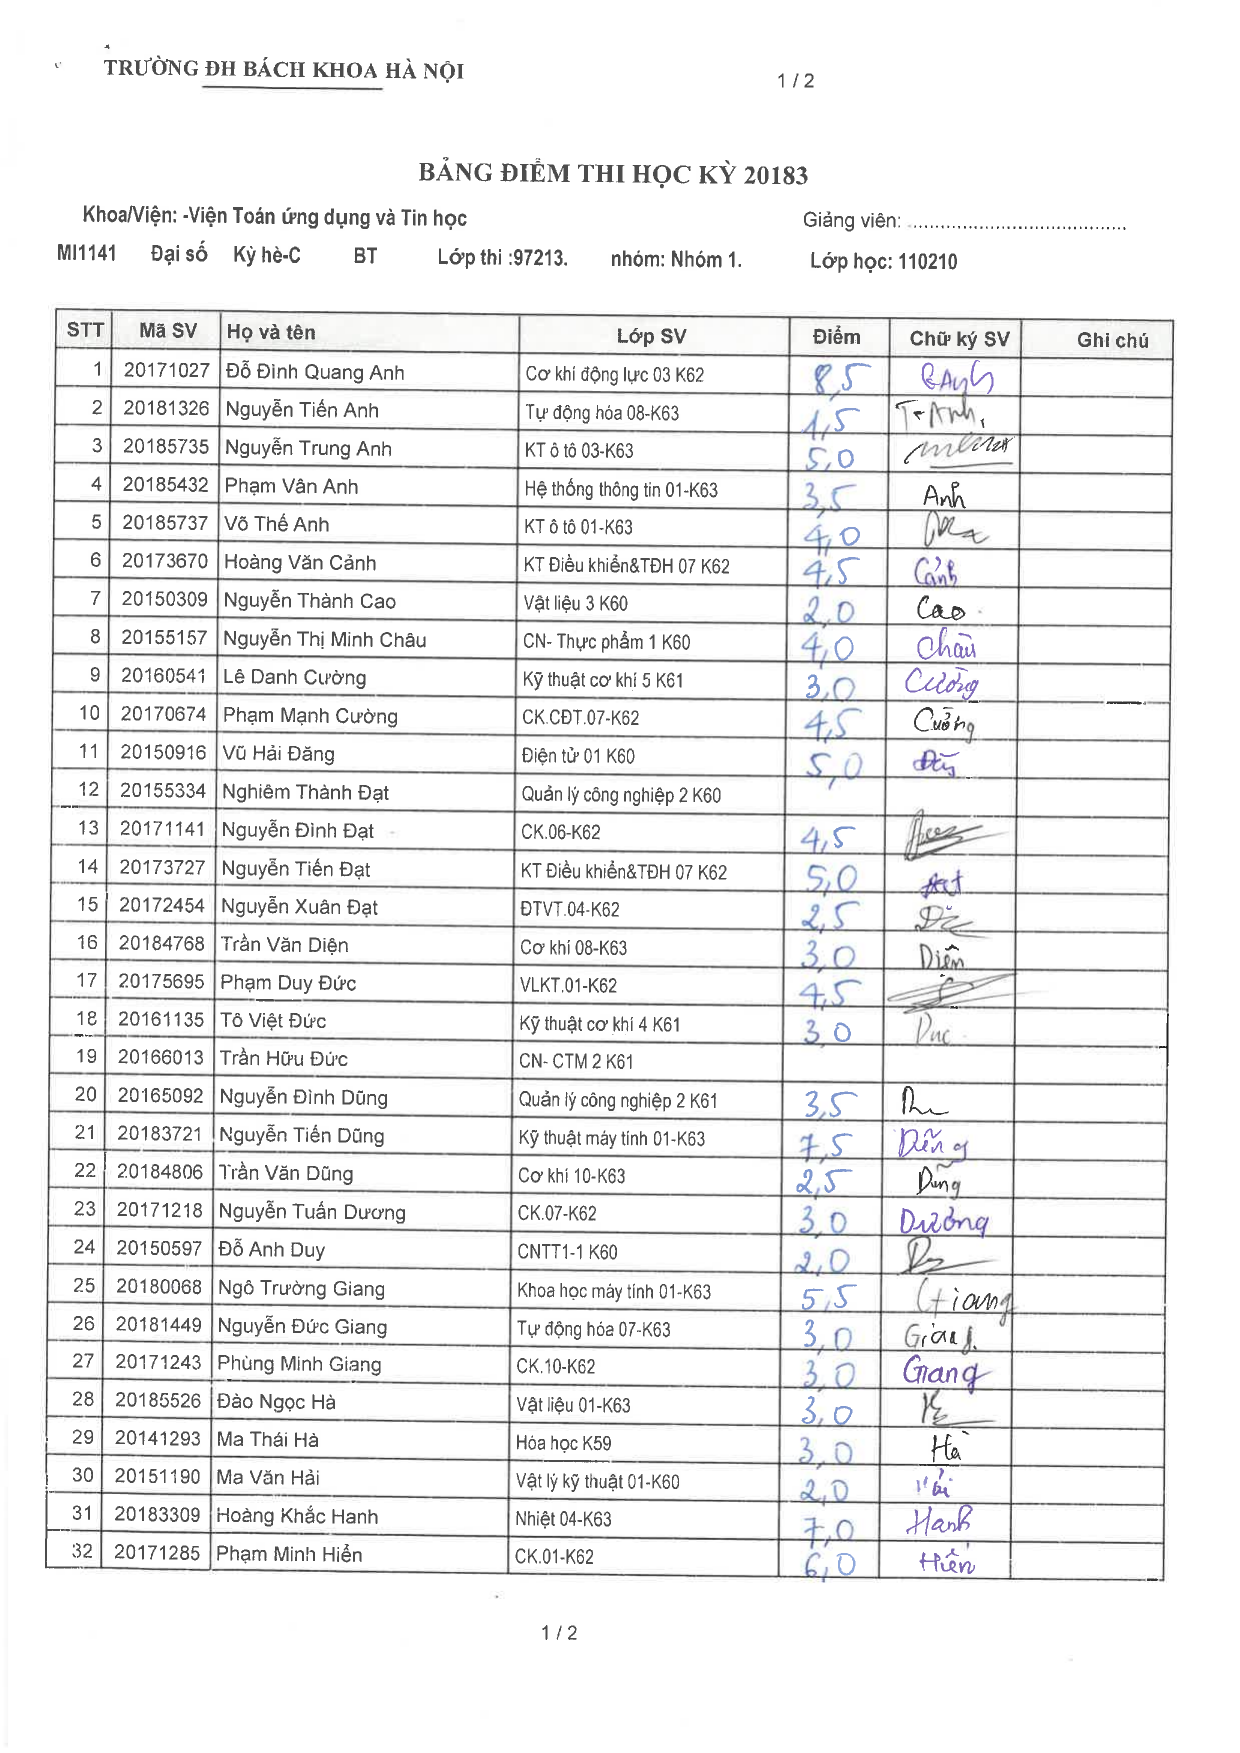 TRƯỜNG ĐH BÁCH KHOA HÀ NỘI
1 / 2
BẢNG ĐIỂM THI HỌC KỲ 20183
Khoa/Viện: -Viện Toán ứng dụng và Tin học Giảng viên: ......................................
MI1141 Đại số Kỳ hè-C BT Lớp thi :97213. nhóm: Nhóm 1. Lớp học: 110210
STT Mã SV Họ và tên Lớp SV Điểm Chữ ký SV Ghi chú
1 20171027 Đỗ Đình Quang Anh Cơ khí động lực 03 K62 8,5 QAnh
2 20181326 Nguyễn Tiến Anh Tự động hóa 08-K63 1,5 T-Anh
3 20185735 Nguyễn Trung Anh KT ô tô 03-K63 5,0
4 20185432 Phạm Vân Anh Hệ thống thông tin 01-K63 3,5 Anh
5 20185737 Võ Thế Anh KT ô tô 01-K63 4,0
6 20173670 Hoàng Văn Cảnh KT Điều khiển&TĐH 07 K62 4,5 Cảnh
7 20150309 Nguyễn Thành Cao Vật liệu 3 K60 2,0 Cao
8 20155157 Nguyễn Thị Minh Châu CN- Thực phẩm 1 K60 4,0 Châu
9 20160541 Lê Danh Cường Kỹ thuật cơ khí 5 K61 3,0 Cường
10 20170674 Phạm Mạnh Cường CK.CĐT.07-K62 4,5 Cường
11 20150916 Vũ Hải Đăng Điện tử 01 K60 5,0
12 20155334 Nghiêm Thành Đạt Quản lý công nghiệp 2 K60
13 20171141 Nguyễn Đình Đạt CK.06-K62 4,5
14 20173727 Nguyễn Tiến Đạt KT Điều khiển&TĐH 07 K62 5,0 Đạt
15 20172454 Nguyễn Xuân Đạt ĐTVT.04-K62 2,5
16 20184768 Trần Văn Diện Cơ khí 08-K63 3,0 Diện
17 20175695 Phạm Duy Đức VLKT.01-K62 4,5
18 20161135 Tô Việt Đức Kỹ thuật cơ khí 4 K61 3,0 Duc
19 20166013 Trần Hữu Đức CN- CTM 2 K61
20 20165092 Nguyễn Đình Dũng Quản lý công nghiệp 2 K61 3,5
21 20183721 Nguyễn Tiến Dũng Kỹ thuật máy tính 01-K63 7,5 Dũng
22 20184806 Trần Văn Dũng Cơ khí 10-K63 2,5 Dũng
23 20171218 Nguyễn Tuấn Dương CK.07-K62 3,0 Dương
24 20150597 Đỗ Anh Duy CNTT1-1 K60 2,0
25 20180068 Ngô Trường Giang Khoa học máy tính 01-K63 5,5 Giang
26 20181449 Nguyễn Đức Giang Tự động hóa 07-K63 3,0 Giang
27 20171243 Phùng Minh Giang CK.10-K62 3,0 Giang
28 20185526 Đào Ngọc Hà Vật liệu 01-K63 3,0
29 20141293 Ma Thái Hà Hóa học K59 3,0 Hà
30 20151190 Ma Văn Hải Vật lý kỹ thuật 01-K60 2,0 Hải
31 20183309 Hoàng Khắc Hanh Nhiệt 04-K63 7,0 Hanh
32 20171285 Phạm Minh Hiển CK.01-K62 6,0 Hiển
1 / 2